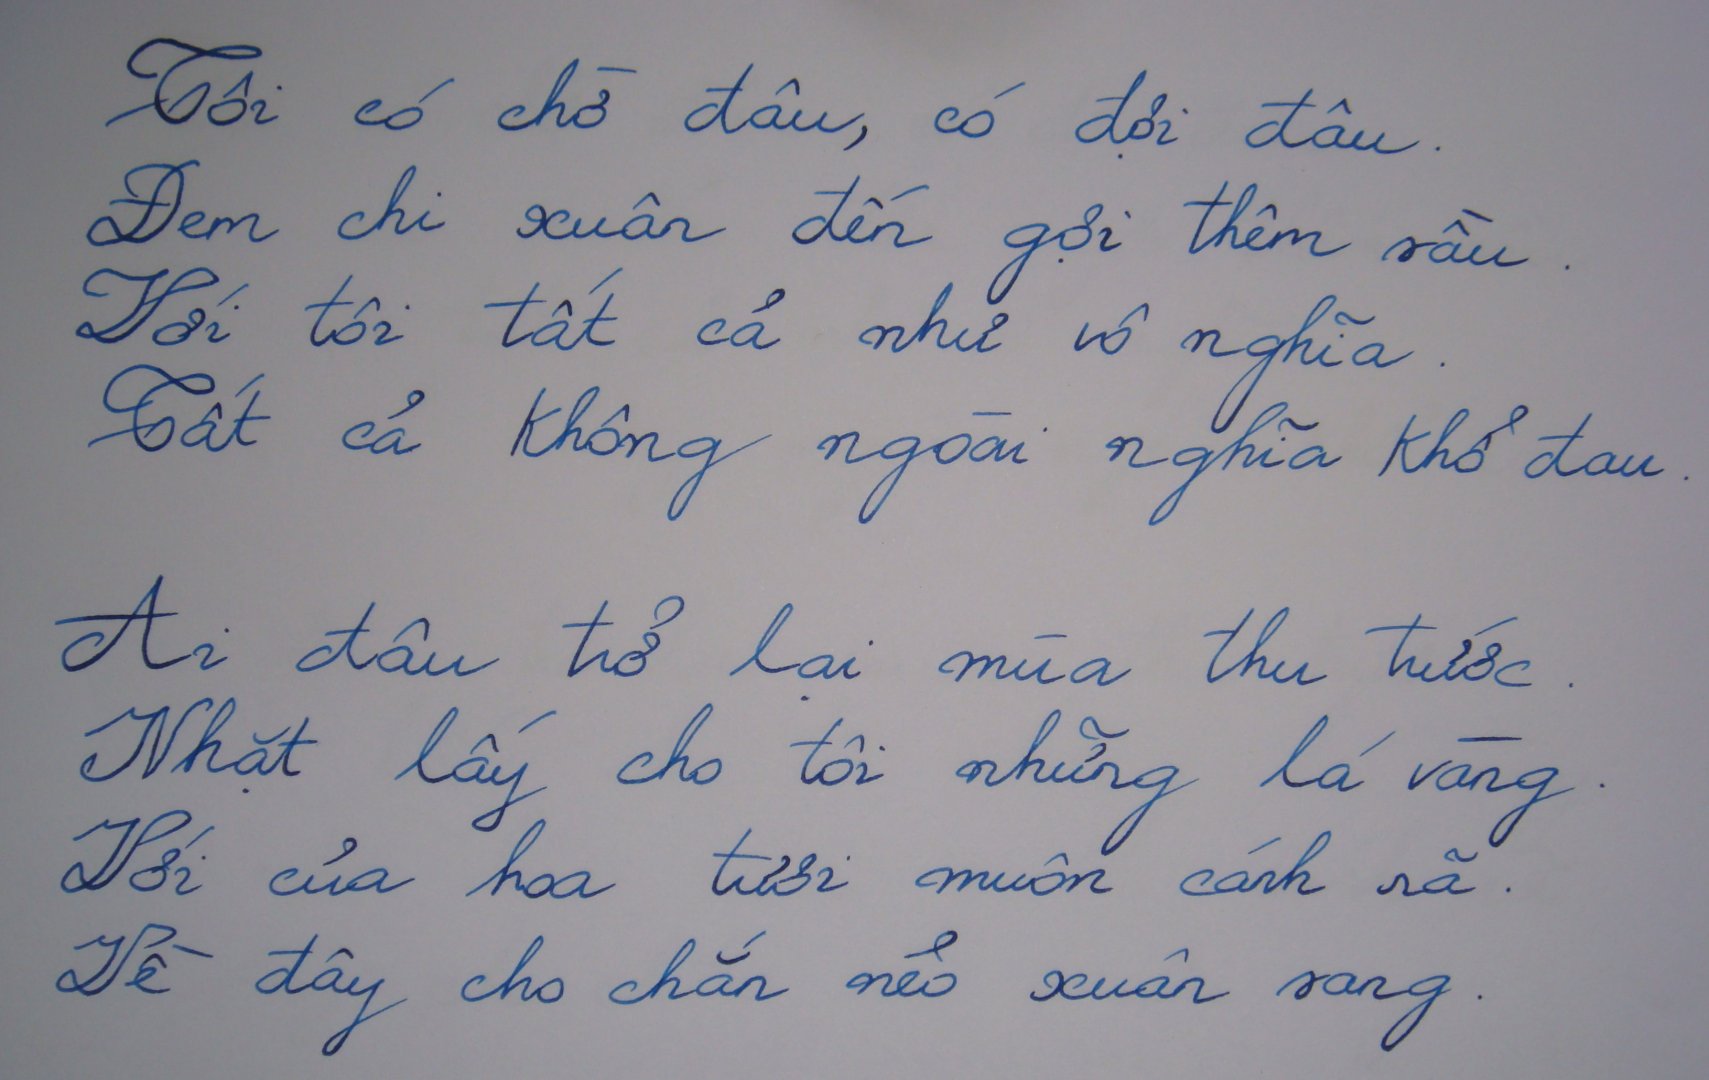 Tôi có chờ đâu, có đợi đâu.
Đem chi xuân đến gợi thêm sầu.
Với tôi tất cả như vô nghĩa.
Tất cả không ngoài nghĩa khổ đau.
Ai đâu trở lại mùa thu trước.
Nhặt lấy cho tôi những lá vàng.
Với của hoa tươi muôn cánh rã.
Về đây cho chắn nẻo xuân sang.